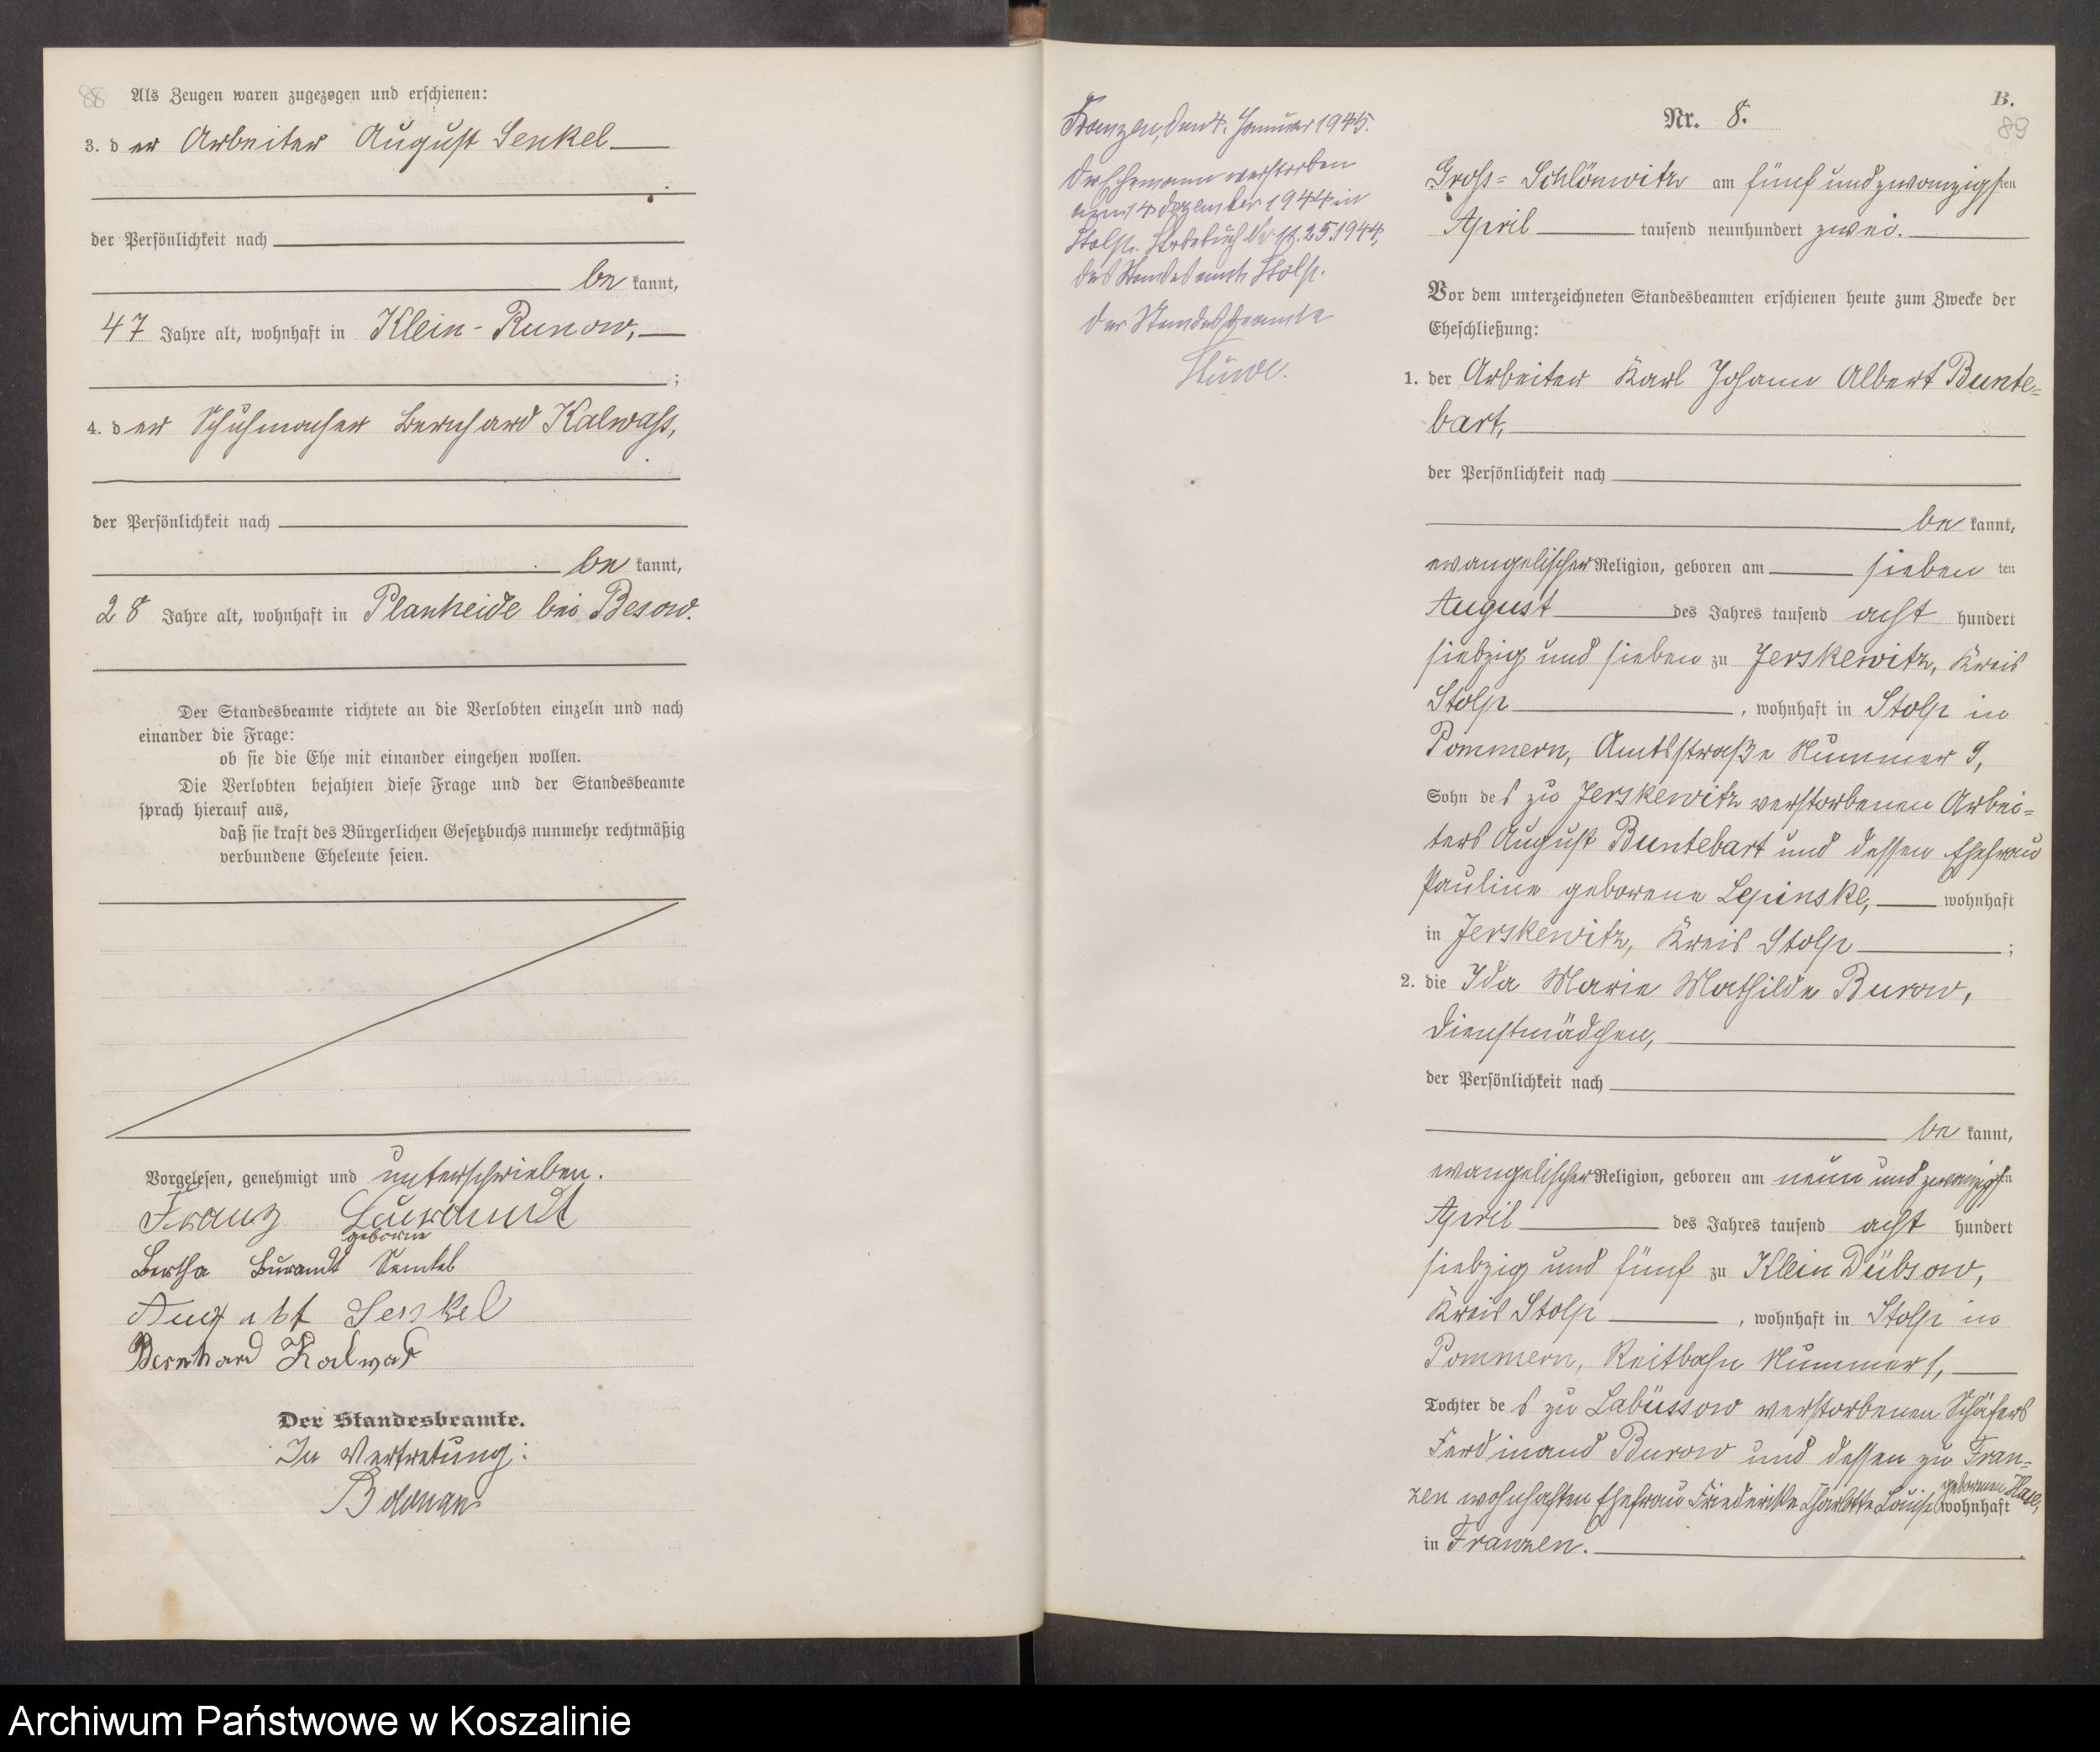 88 Als Zeugen waren zugezogen und erschienen:
3. der Arbeiter August Senkel
der Persönlichkeit nach
be kannt,
47 Jahre alt, wohnhaft in Klein-Runow,
;
4. der Schuhmacher Bernhard Kalwaß,
der Persönlichkeit nach
be kannt,
28 Jahre alt, wohnhaft in Planheide bei Besow.
Der Standesbeamte richtete an die Verlobten einzeln und nach
einander die Frage:
ob sie die Ehe mit einander eingehen wollen.
Die Verlobten bejahten diese Frage und der Standesbeamte
sprach hierauf aus,
daß sie kraft des Bürgerlichen Gesetzbuchs nunmehr rechtmäßig
verbundene Eheleute seien.
Vorgelesen, genehmigt und unterschrieben.
Franz
geborne
Bertha
August Senkel
Bernhard Kalwaß
Der Standesbeamte.
In Vertretung:
Franzen, den 4. Januar 1945.
Der Ehemann verstorben
am 14 Dezember 1944 in
Stolp. Sterbebuch Nr
des Standesamts Stolp.
Der Standesbeamte
B.
Nr. 8.
89
Gross-Schlönwitz am fünf und zwanzigsten
April tausend neunhundert zwei.
Vor dem unterzeichneten Standesbeamten erschienen heute zum Zwecke der
Eheschließung:
1. der Arbeiter Karl Johann Albert Bunte-
bart,
der Persönlichkeit nach
be kannt,
evangelischer Religion, geboren am sieben ten
August des Jahres tausend acht hundert
siebzig und sieben zu Jerskewitz, Kreis
Stolp, wohnhaft in Stolp in
Pommern, Amtsstraße Nummer 9,
Sohn des zu Jerskewitz verstorbenen Arbei-
ters August Buntebart und dessen Ehefrau
Pauline geborene Lepinske, wohnhaft
in Jerskewitz, Kreis Stolp ;
2. die Ida Marie Mathilde Burow,
Dienstmädchen,
der Persönlichkeit nach
be kannt,
evangelischer Religion, geboren am neun und zwanzigsten
April des Jahres tausend acht hundert
siebzig und fünf zu Klein Dübsow,
Kreis Stolp, wohnhaft in Stolp in
Pommern, Reitbahn Nummer 1,
Tochter des zu Labüssow verstorbenen Schäfers
Ferdinand Burow und dessen zu Fran-
zen wohnhaften Ehefrau Friederike Charlotte Louise geborenen Hase, wohnhaft
in Franzen.
Archiwum Państwowe w Koszalinie